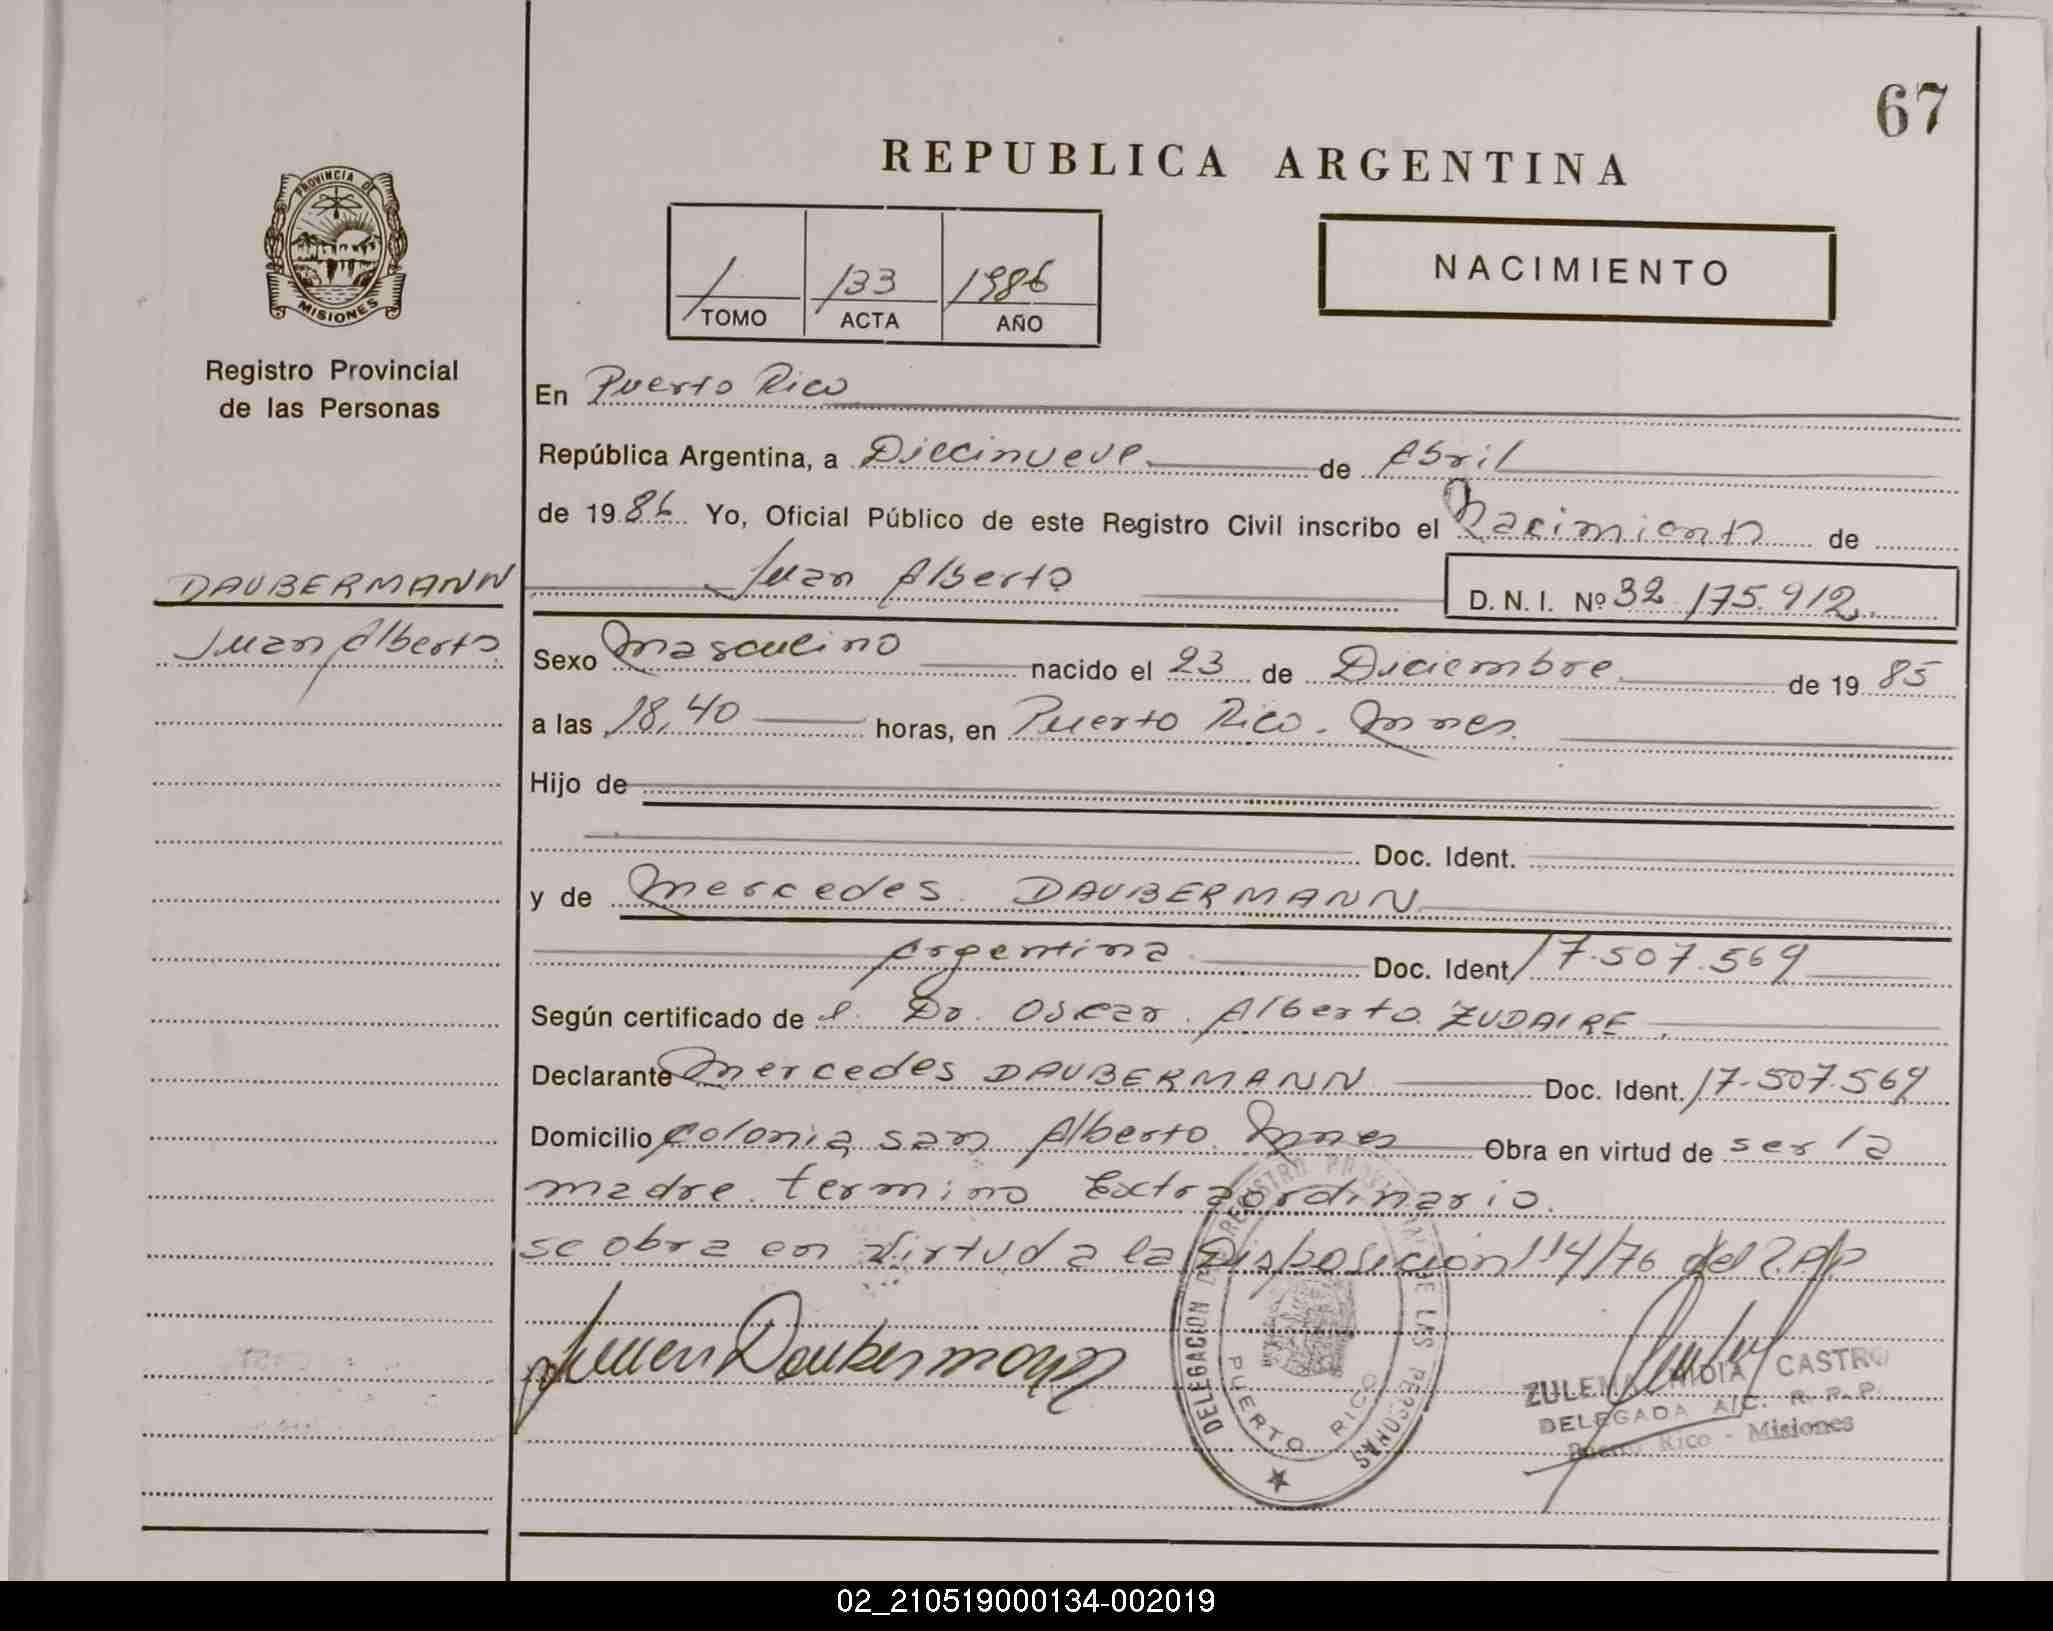 67
REPUBLICA ARGENTINA
PROVINCIA DE
MISIONES
Registro Provincial
de las Personas
1 133 1986
TOMO ACTA AÑO
NACIMIENTO
En Puerto Rico
República Argentina, a Diecinueve de Abril
de 1986 Yo, Oficial Público de este Registro Civil inscribo el Nacimiento de
DAUBERMANN
Juan Alberto D. N. I. Nº 32.175.912
Juan Alberto
Sexo Masculino nacido el 23 de Diciembre de 1985
a las 18,40 horas, en Puerto Rico. Mnes.
Hijo de
Doc. Ident.
y de Mercedes DAUBERMANN
Argentina Doc. Ident. 17.507.569
Según certificado de el Dr. Oscar Alberto ZUDAIRE
Declarante Mercedes DAUBERMANN Doc. Ident. 17.507.569
Domicilio Colonia San Alberto Mnes Obra en virtud de ser la
madre. termino Extraordinario.
se obra en virtud a la Disposición 114/76 del R.P.P
DELEGACION DEL REGISTRO PROVINCIAL DE LAS PERSONAS
PUERTO RICO
Daubermann
ZULEMA CASTRO
DELEGADA A/C. R. P. P.
Puerto Rico - Misiones
02_210519000134-002019